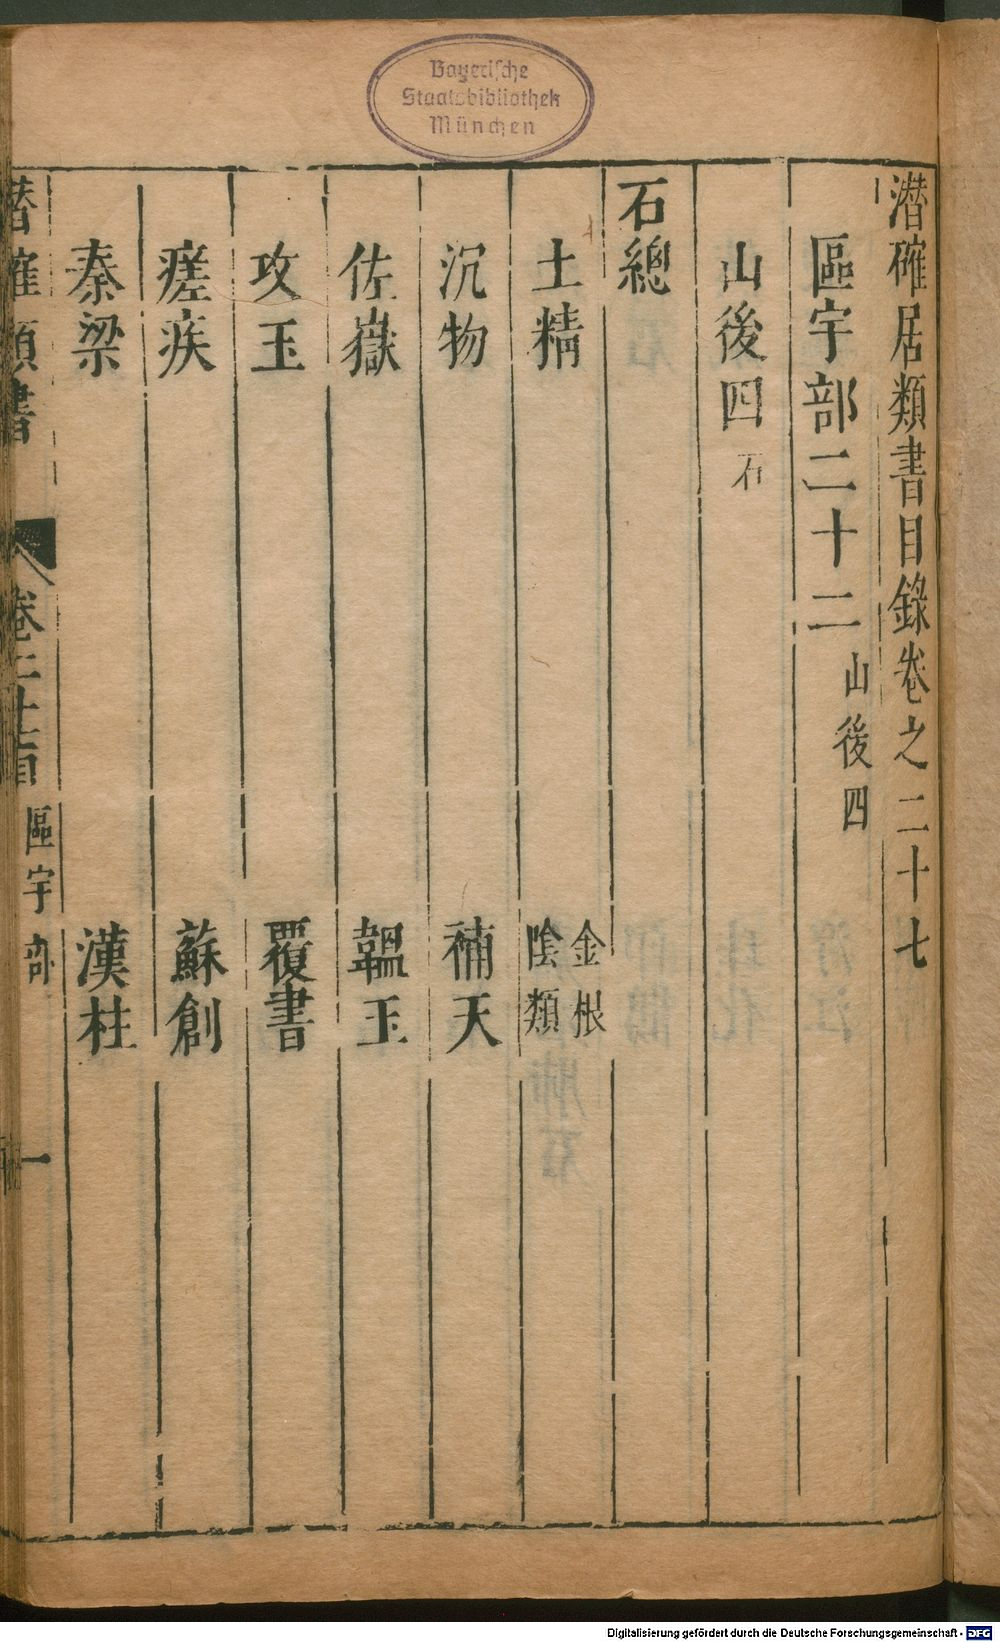 潛確居類書目錄卷之二十七
區宇部二十二 山後四
山後四 石
石總
土精 金根 陰類
沉物 補天
佐嶽 韞玉
攻玉 覆書
瘥疾 蘇創
秦梁 漢柱
潛確類書 卷二十七目 區宇部 一
Bayerische
Staatsbibliothek
München
Digitalisierung gefördert durch die Deutsche Forschungsgemeinschaft - DFG